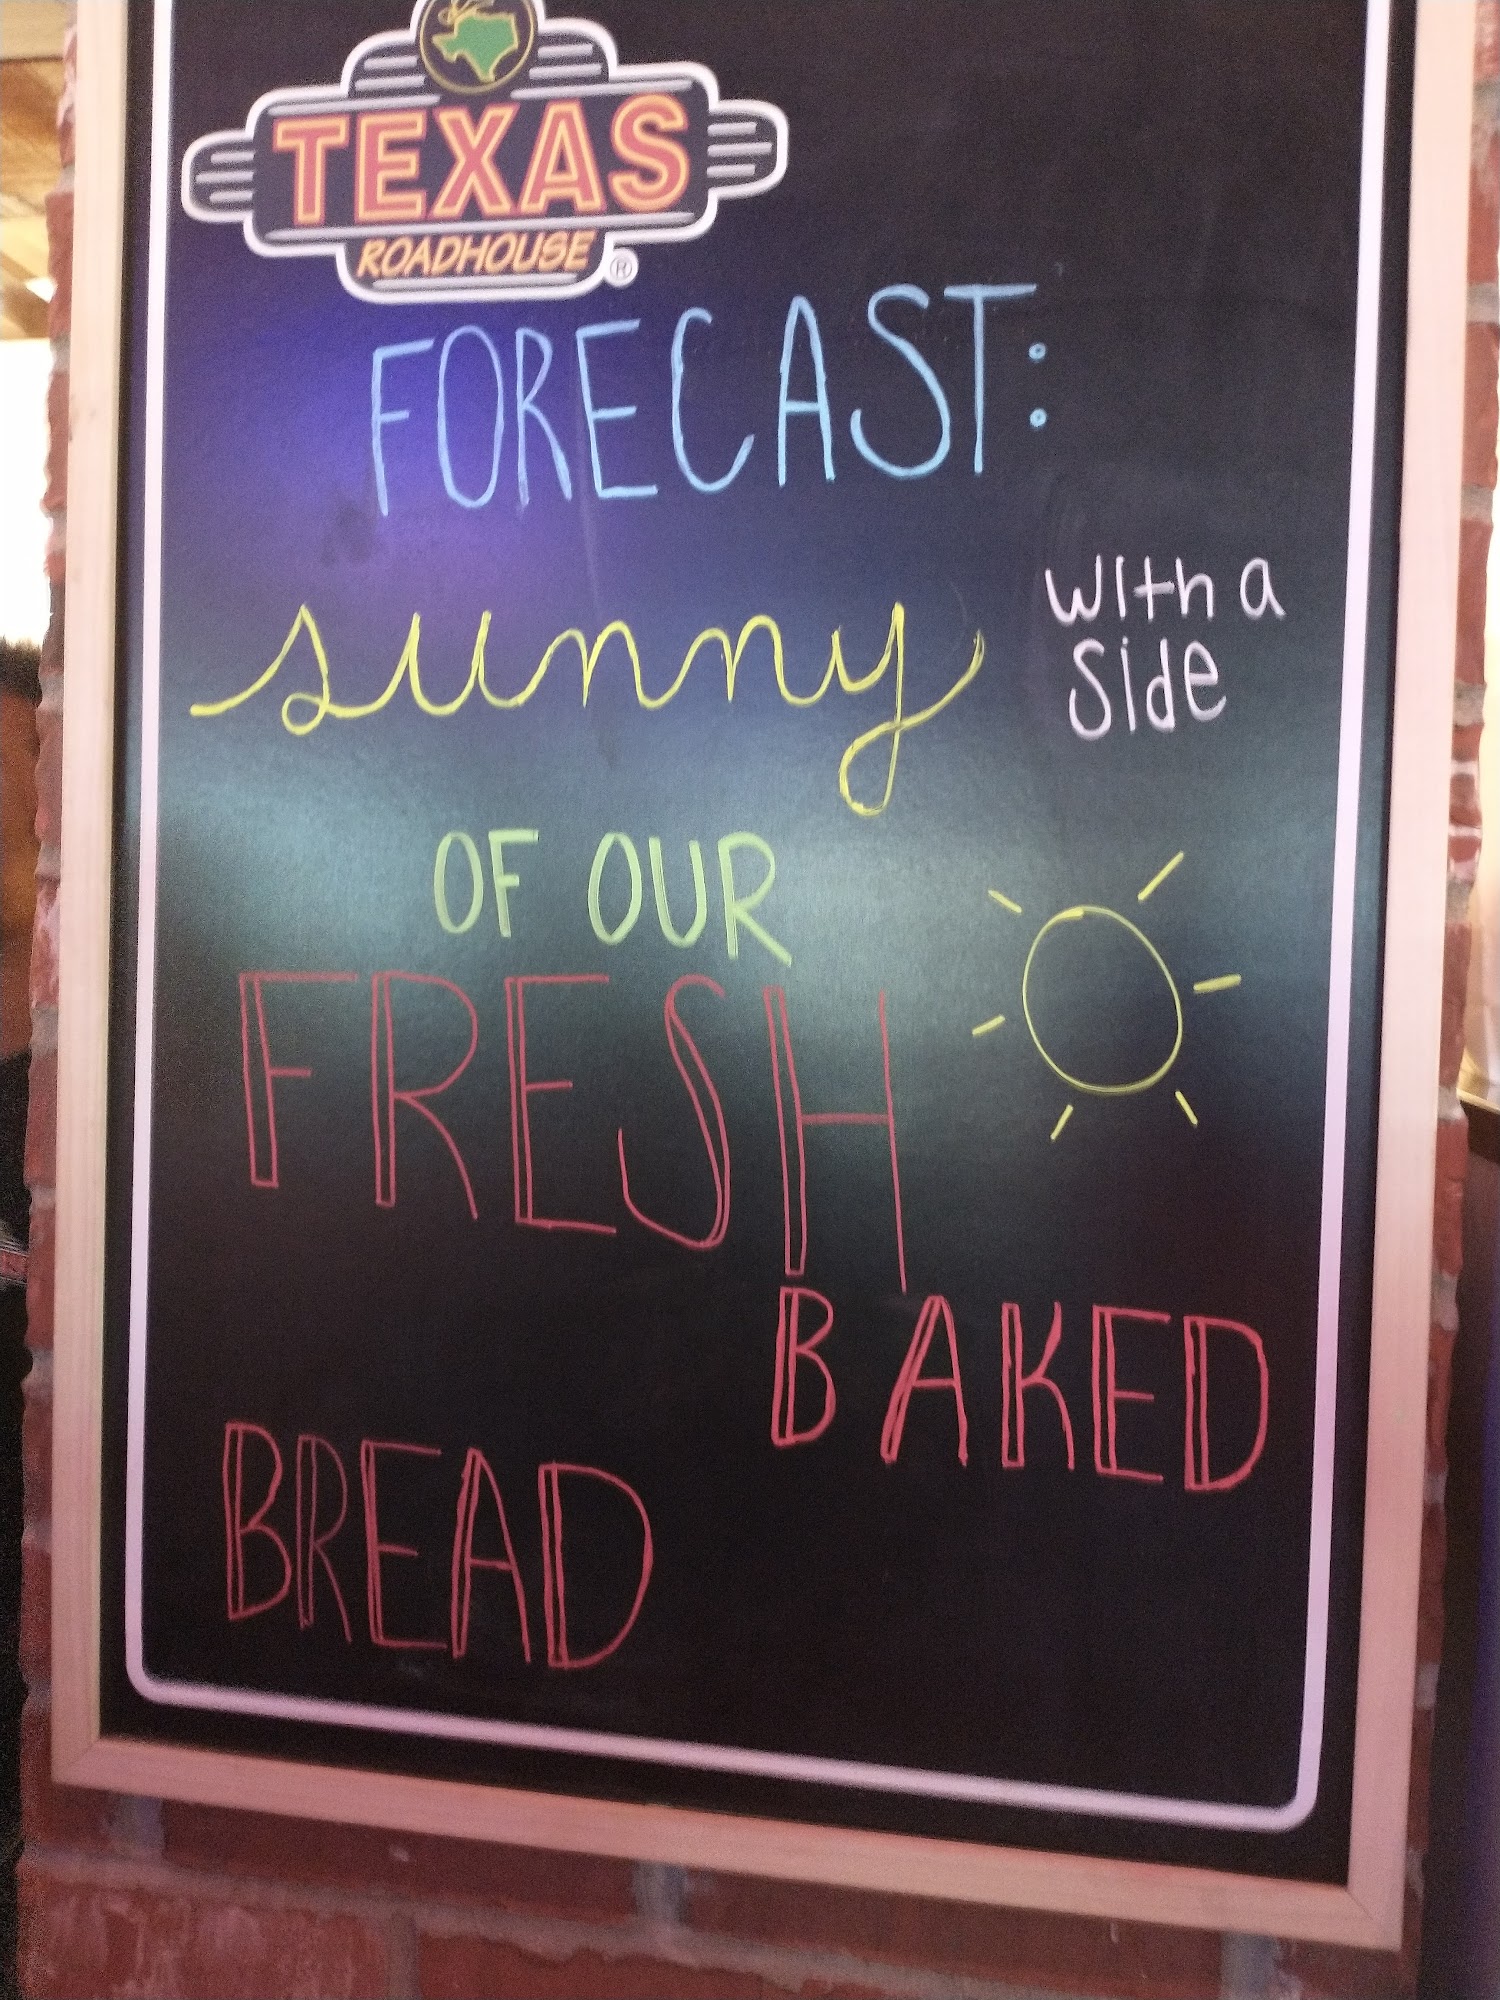 TEXAS
ROADHOUSE®
FORECAST:
sunny
with a
side
OF OUR
FRESH
BAKED
BREAD